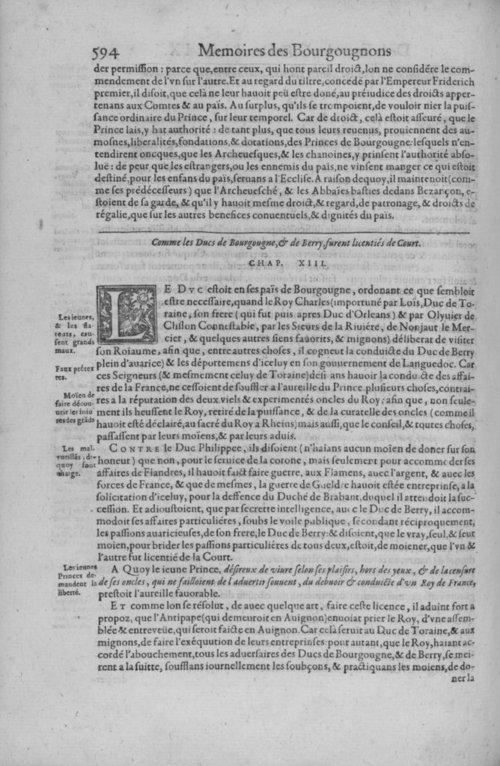 594 Memoires des Bourgougnons
der permission : parce que, entre ceux, qui hont pareil droict, lon ne considére le com-
mendement de l'vn sur l'autre. Et au regard du tiltre, concedé par l'Empereur Friderich
premier, il disoit, que celà ne leur hauoit peü estre doné, au préiudice des droicts apper-
tenans aux Comtes & au païs. Au surplus, qu'ils se trompoient, de vouloir nier la puis-
sance ordinaire du Prince, sur leur temporel. Car de droict, celà estoit asseuré, que le
Prince lais, y hat authorité : de tant plus, que tous leurs reuenus, prouiennent des au-
mosnes, liberalités, fondations, & dotations, des Princes de Bourgougne: lesquels n'en-
tendirent oncques, que les Archeuesques, & les chanoines, y prinsent l'authorité abso-
luë : de peur que les estrangers, ou les ennemis du païs, ne vinsent manger ce qui estoit
destiné pour les enfans du païs, seruans a l'Ecclise. A raison dequoy, il maintenoit (com-
me ses prédécesseurs) que l'Archeuesché, & les Abbaïes basties dedans Bezançon, e-
stoient de sa garde, & qu'il y hauoit mesme droict, & regard, de patronage, & droicts de
régalie, que sur les autres benefices conuentuels, & dignités du païs.
Comme les Ducs de Bourgougne, & de Berry, furent licentiés de Court.
CHAP. XIII.
LE DVC estoit en ses païs de Bourgougne, ordonant ce que sembloit
estre necessaire, quand le Roy Charles (importuné par Loïs, Duc de To-
raine, son frere (qui fut puis apres Duc d'Orleans) & par Olyuier de
Clisson Connestable, par les Sieurs de la Riuiére, de Nonjaut le Mer-
cier, & quelques autres siens fauorits, & mignons) déliberat de visiter
son Roiaume, afin que, entre autres choses, il cogneut la conduicte du Duc de Berry
plein d'auarice) & les déportemens d'iceluy en son gouuernement de Languedoc. Car
ces Seigneurs (& mesmement celuy de Toraine) desirans hauoir la conducte des affai-
res de la France, ne cessoient de souffler a l'aureille du Prince plusieurs choses, contrai-
res a la réputation des deux vieils & experimentés oncles du Roy: afin que, non seule-
ment ils heussent le Roy, retiré de la puissance, & de la curatelle des oncles (comme il
hauoit esté déclairé, au sacré du Roy a Rheins) mais aussi, que le conseil, & toutes choses,
passassent par leurs moïens, & par leurs aduis.
Les ieunes,
& les fla-
teurs, cau-
sent grands
maux.
Faux prétex-
tes.
Moïen de
faire décou-
urir les iniu
res des grãds
CONTRE le Duc Philippe, ils disoient (n'haïans aucun moïen de doner sur son
honeur) que non, pour le seruice de la corone, mais seulement pour accommoder ses
affaires de Flandres, il hauoit faict faire guerre, aux Flamens, auec l'argent, & auec les
forces de France, & que de mesmes, la guerre de Gueldre hauoit estée entreprise, a la
solicitation d'iceluy, pour la deffence du Duché de Brabant, duquel il attendoit la suc-
cession. Et adioustoient, que par secrette intelligence, auec le Duc de Berry, il accom-
modoit ses affaires particuliéres, soubs le voile publique, sécondant réciproquement,
les passions auaricieuses, de son frere, le Duc de Berry: & disoient, que le vray, seul, & seur
moïen, pour brider les passions particuliéres de tous deux, estoit, de moiener, que l'vn &
l'autre fut licentié de la Court.
Les mal-
A Quoy le ieune Prince, désireux de viure selon ses plaisirs, hors des yeux, & de la censure
de ses oncles, qui ne failloient de l'aduertir souuent, du debuoir & conducte d'vn Roy de France,
prestoit l'aureille fauorable.
Les ieunes
Princes de-
mandent la
liberté.
ET comme lon se résolut, de auec quelque art, faire ceste licence, il aduint fort a
propoz, que l'Antipape (qui demeuroit en Auignon) enuoiat prier le Roy, d'vne assem-
blée & entreveüe, qui seroit faicte en Auignon. Car cela seruit au Duc de Toraine, & aux
mignons, de faire l'exéqution de leurs entreprinses: pour autant, que le Roy, haiant ac-
cordé l'abouchement, tous les aduersaires des Ducs de Bourgougne, & de Berry, se mei-
rent a la suitte, soufflans iournellement les soubçons, & practiquans les moïens, de do-
ner la